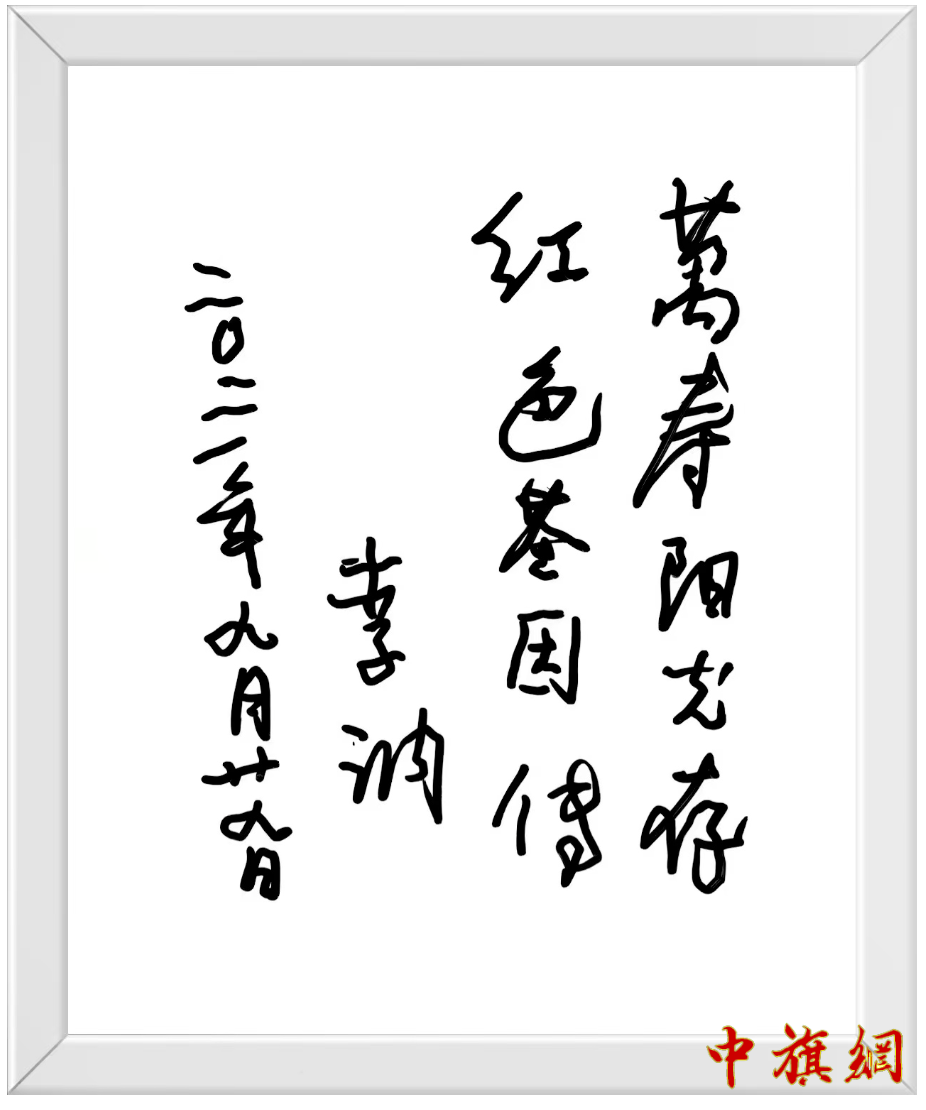 萬寿阳光存
红色基因傳
李讷
二〇二一年九月廿九日
中旗網